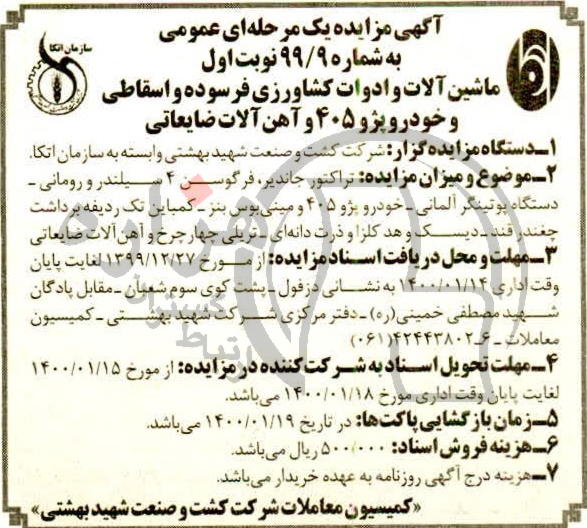 سازمان اتکا
آگهی مزایده یک مرحله‌ای عمومی
به شماره ۹۹/۹ نوبت اول
ماشین آلات و ادوات کشاورزی فرسوده و اسقاطی
و خودرو پژو ۴۰۵ و آهن آلات ضایعاتی
۱ــ دستگاه مزایده گزار: شرکت کشت و صنعت شهید بهشتی وابسته به سازمان اتکا.
۲ــ موضوع و میزان مزایده: تراکتور جاندیر، فرگوسن ۴ سیلندر و رومانی ـ
دستگاه پوتینگر آلمانی ـ خودرو پژو ۴۰۵ و مینی‌بوس بنز ـ کمباین تک ردیفه برداشت
چغندر قند ـ دیسک و هد کلزا و ذرت دانه‌ای ـ تریلی چهارچرخ و آهن آلات ضایعاتی
۳ــ مهلت و محل دریافت اسناد مزایده: از مورخ ۱۳۹۹/۱۲/۲۷ لغایت پایان
وقت اداری ۱۴۰۰/۰۱/۱۴ به نشانی دزفول ـ پشت کوی سوم شعبان ـ مقابل پادگان
شهید مصطفی خمینی(ره) ـ دفتر مرکزی شرکت شهید بهشتی ـ کمیسیون
معاملات ـ ۶ـ۴۲۴۴۳۸۰۲(۰۶۱)
۴ــ مهلت تحویل اسناد به شرکت کننده در مزایده: از مورخ ۱۴۰۰/۰۱/۱۵
لغایت پایان وقت اداری مورخ ۱۴۰۰/۰۱/۱۸ می‌باشد.
۵ــ زمان بازگشایی پاکت‌ها: در تاریخ ۱۴۰۰/۰۱/۱۹ می‌باشد.
۶ــ هزینه فروش اسناد: ۵۰۰/۰۰۰ ریال می‌باشد.
۷ــ هزینه درج آگهی روزنامه به عهده خریدار می‌باشد.
«کمیسیون معاملات شرکت کشت و صنعت شهید بهشتی»